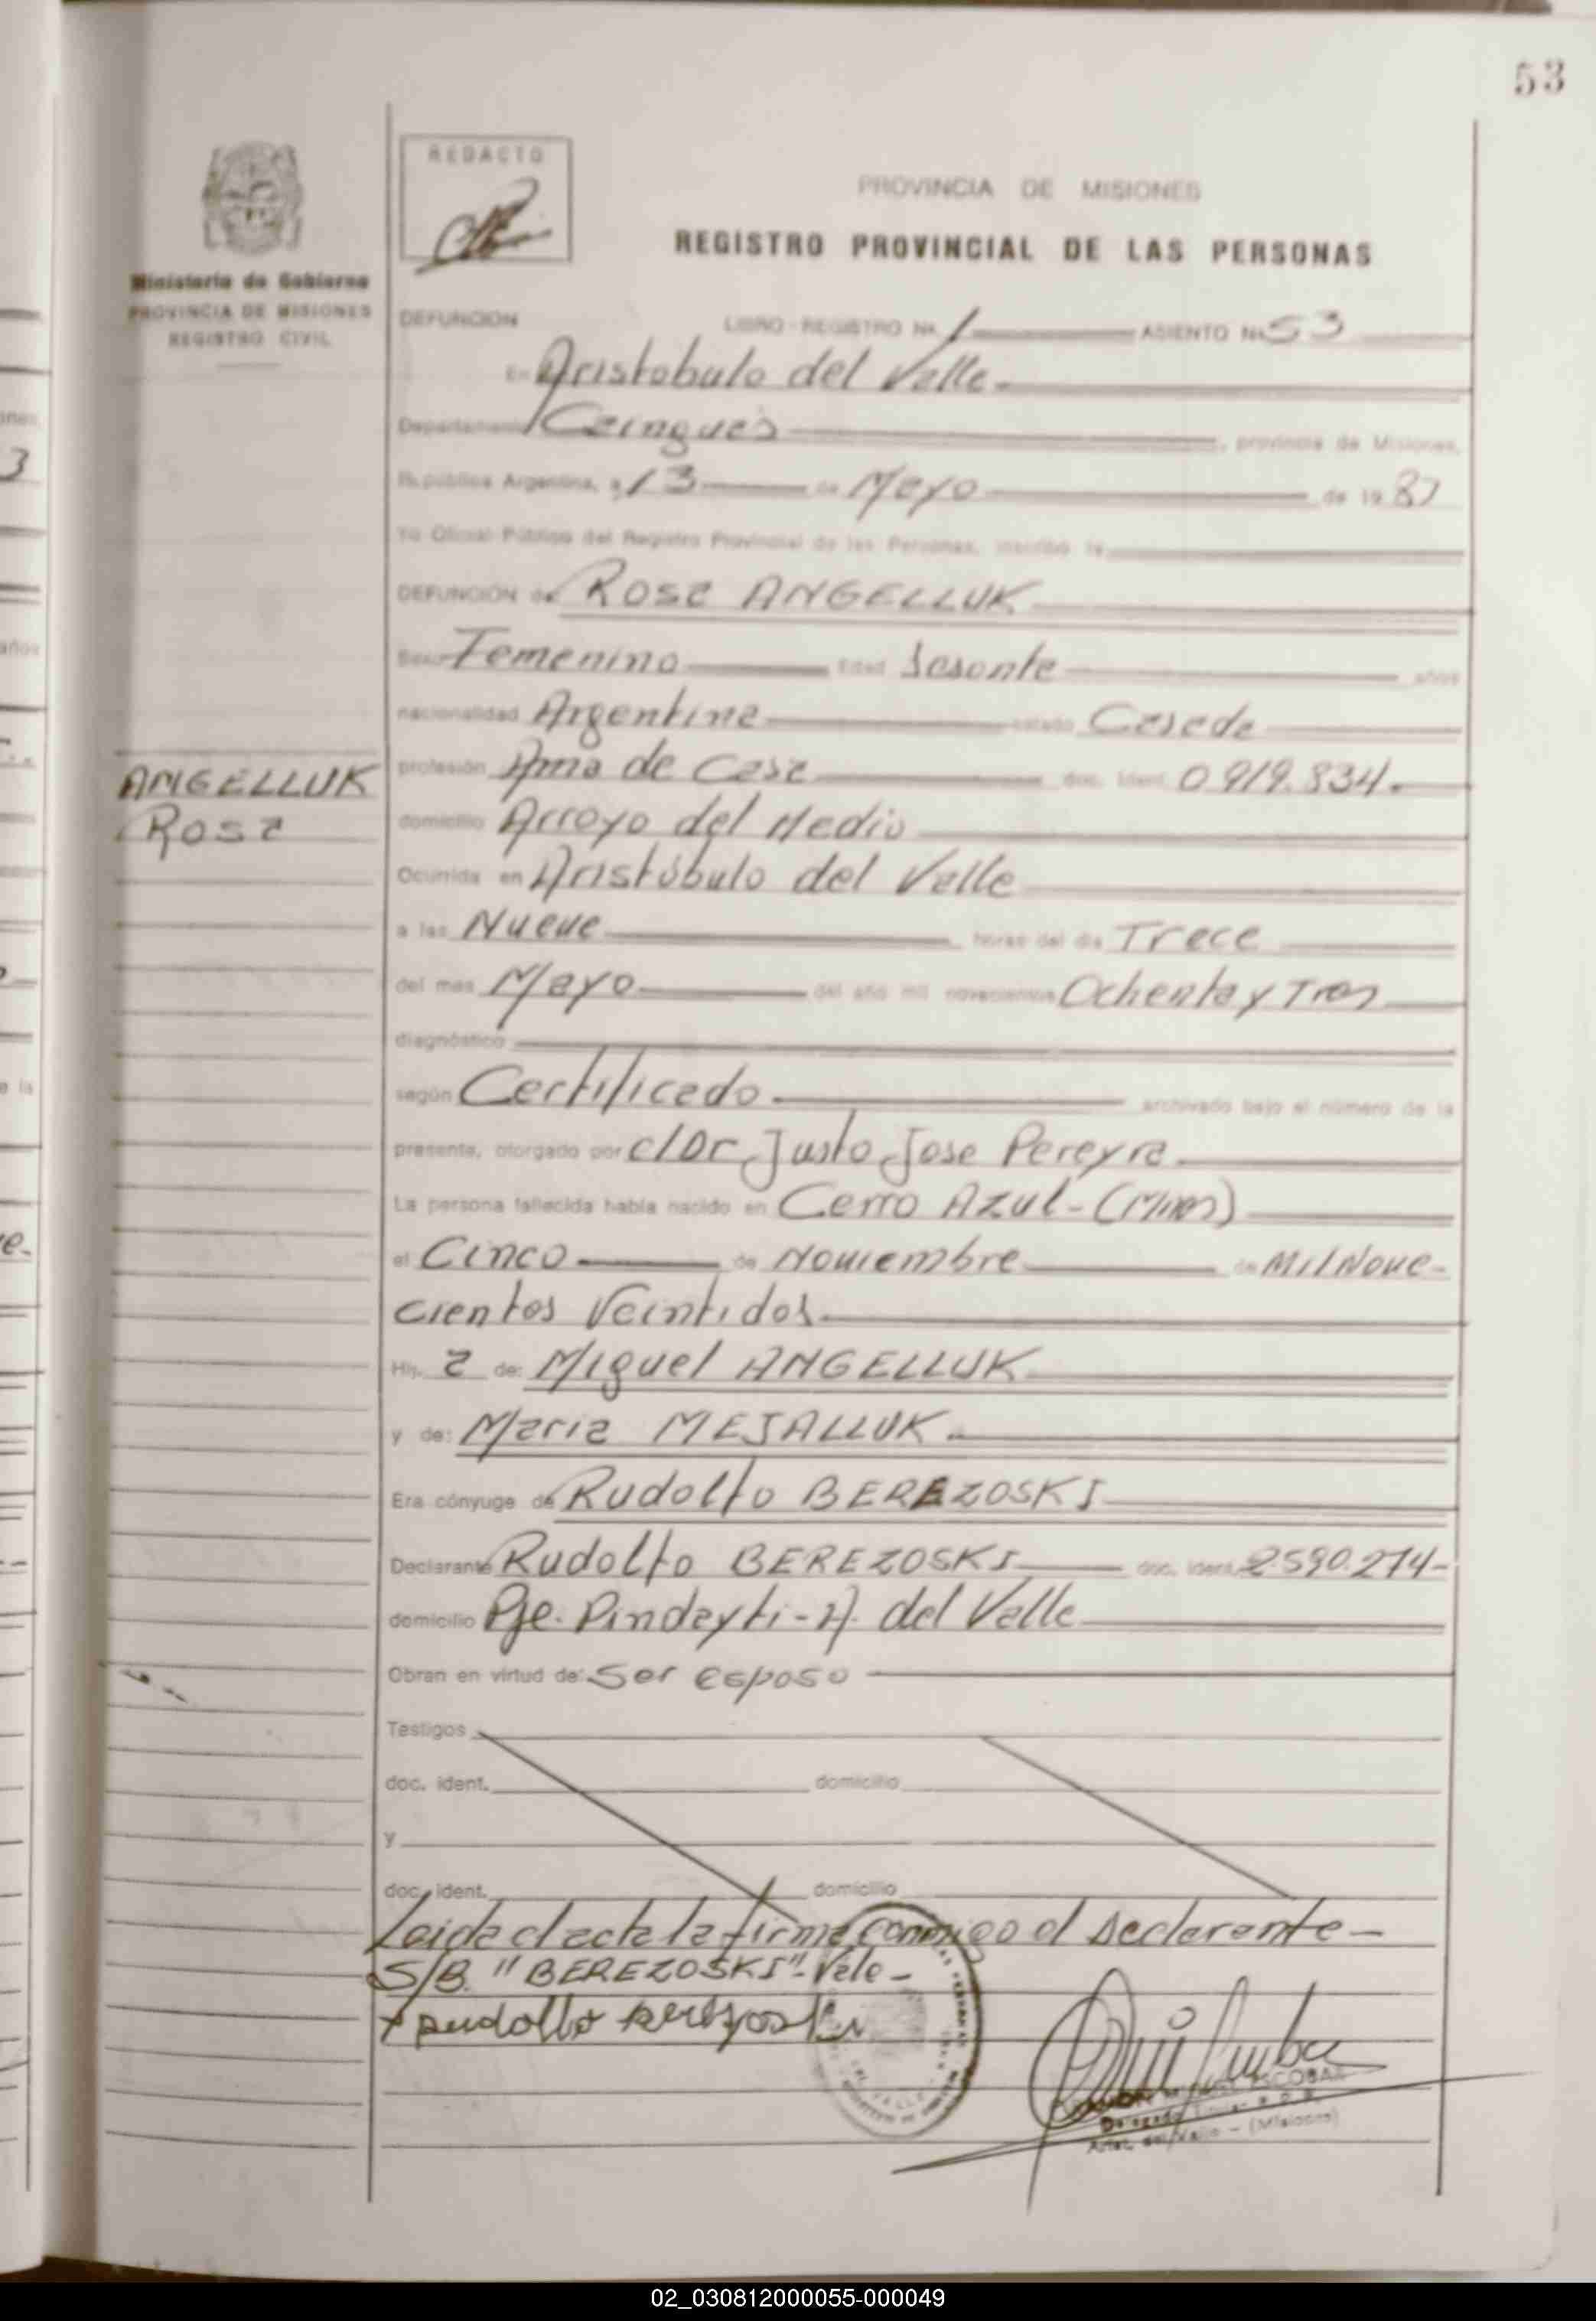 53
REDACTO
PROVINCIA DE MISIONES
REGISTRO PROVINCIAL DE LAS PERSONAS
Ministerio de Gobierno
PROVINCIA DE MISIONES
REGISTRO CIVIL
DEFUNCION LIBRO - REGISTRO No. 1 ASIENTO No. 53
En Aristobulo del Valle
Departamento Cainguás, provincia de Misiones,
República Argentina, a 13 de Mayo de 19 83
Yo Oficial Público del Registro Provincial de las Personas, inscribo la
DEFUNCION de Rosa ANGELLUK
Sexo Femenino Edad Sesenta años
nacionalidad Argentina estado Casada
profesión Ama de Casa doc. ident. 0919.834.
domicilio Arroyo del Medio
ANGELLUK
Rosa
Ocurrida en Aristóbulo del Valle
a las Nueve horas del día Trece
del mes Mayo del año mil novecientos Ochenta y Tres
diagnóstico
según Certificado archivado bajo el número de la
presente, otorgado por c/Dr Justo Jose Pereyra
La persona fallecida había nacido en Cerro Azul - (Mnes)
el Cinco de Noviembre de Mil Nove-
cientos Veintidos
Hij. a de: Miguel ANGELLUK
y de: Maria MEJALLUK.
Era cónyuge de Rudolfo BEREZOSKI
Declarante Rudolfo BEREZOSKI doc. ident. 2.590.274-
domicilio Pje. Pindayti - A. del Valle
Obran en virtud de: Ser esposo
Testigos
doc. ident. domicilio
y
doc. ident. domicilio
Leida el acta la firma conmigo el declarante -
S/B. "BEREZOSKI" - Vale -
ESCOBAR
Delegado Titular
Arist. del Valle - (Misiones)
02_030812000055-000049